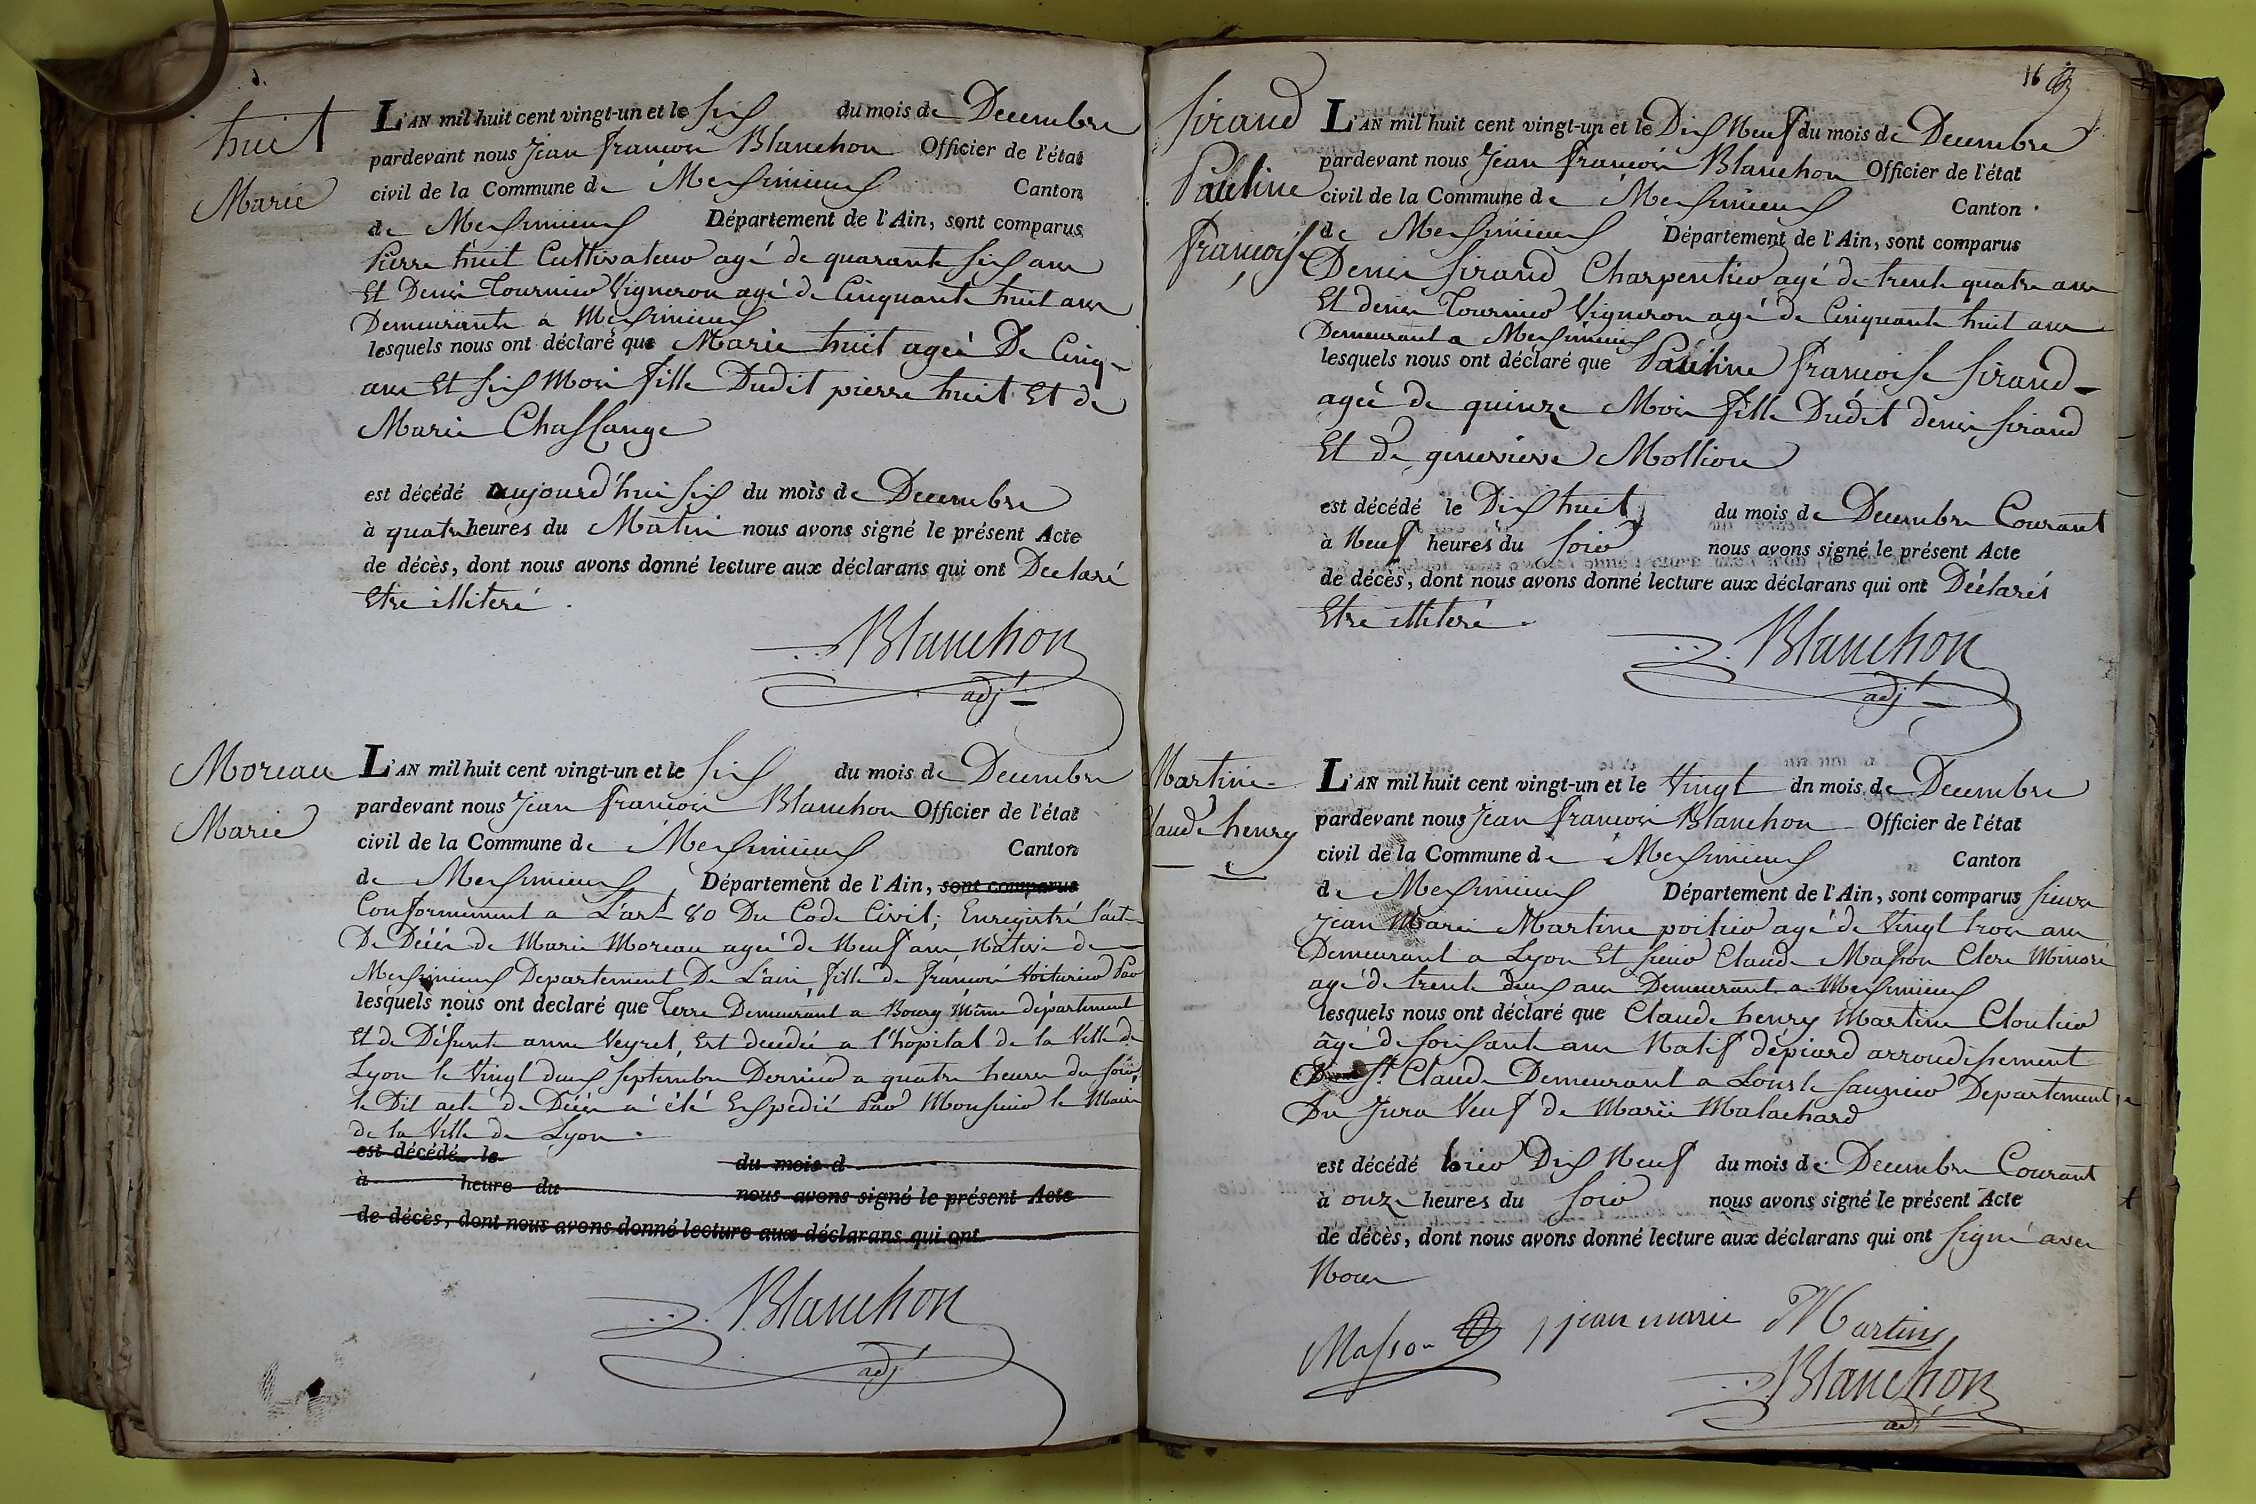 huit
Marie
L'AN mil huit cent vingt-un et le six du mois de Decembre
pardevant nous Jean francois Blanchon Officier de l'état
civil de la Commune de Meximieux Canton
de Meximieux Département de l'Ain, sont comparus
Pierre huit Cultivateur agé de quarante six ans
Et Denis Tournier Vigneron agé de Cinquante huit ans
Demeurants a Meximieux
lesquels nous ont déclaré que Marie huit ageé De Cinq
ans Et six Mois fille Dudit pierre huit Et de
Marie Chaslange
est décédé aujourd'hui six du mois de Decembre
à quatre heures du Matin nous avons signé le présent Acte
de décès, dont nous avons donné lecture aux déclarans qui ont Declaré
Etre illiteré.
Blanchon
adjt
Moreau
Marie
L'AN mil huit cent vingt-un et le six du mois de Decembre
pardevant nous Jean francois Blanchon Officier de l'état
civil de la Commune de Meximieux Canton
de Meximieux Département de l'Ain, sont comparus
Conformement a L'art 80 Du Code Civil; Enregistré l'acte
De Décès de Marie Moreau ageé de Neuf ans Native de
Meximieux Departement De L'ain fille de francois Voiturier Par
lesquels nous ont declaré que Terre Demeurant a Bourg Même département
Et de Défunte anne Veyret, Est decedée a l'hopital de la Ville de
Lyon le Vingt deux Septembre Dernier a quatre heures du soir,
le Dit acte de Décès a été Expedié Par Monsieur le Maire
de la Ville de Lyon.
est décédé le du mois d
à heure du nous avons signé le présent Acte
de décès, dont nous avons donné lecture aux déclarans qui ont
Blanchon
adjt
16
Sirand
Pauline
francoise
L'AN mil huit cent vingt-un et le Dix Neuf du mois de Decembre
pardevant nous Jean francois Blanchon Officier de l'état
civil de la Commune de Meximieux Canton
de Meximieux Département de l'Ain, sont comparus
Denis Sirand Charpentier agé de trente quatre ans
Et denis Tournier Vigneron agé de Cinquante huit ans
Demeurant a Meximieux
lesquels nous ont déclaré que Pauline francoise Sirand
ageé de quinze Mois fille Dudit denis Sirand
Et De genevieve Mollion
est décédé le Dix huit du mois de Decembre Courant
à Neuf heures du soir nous avons signé le présent Acte
de décès, dont nous avons donné lecture aux déclarans qui ont Déclarés
Etre illiteré.
Blanchon
adjt
Martine
Claude henry
L'AN mil huit cent vingt-un et le Vingt dn mois de Decembre
pardevant nous Jean francois Blanchon Officier de l'état
civil de la Commune de Meximieux Canton
de Meximieux Département de l'Ain, sont comparus sieurs
Jean Marie Martine poitier agé de Vingt trois ans
Demeurant a Lyon Et sieur Claude Masson Clerc Minoré
agé de trente deux ans Demeurant a Meximieux
lesquels nous ont déclaré que Claude henry Martine Cloutier
âgé de soixante ans Natif dépiard arrondissement
De St. Claude Demeurant a Lons le Saunier Departement
Du Jura Veuf de Marie Malachard
est décédé hier Dix Neuf du mois de Decembre Courant
à onze heures du soir nous avons signé le présent Acte
de décès, dont nous avons donné lecture aux déclarans qui ont signé avec
Nous
Masson jean marie Martine
Blanchon
adjt